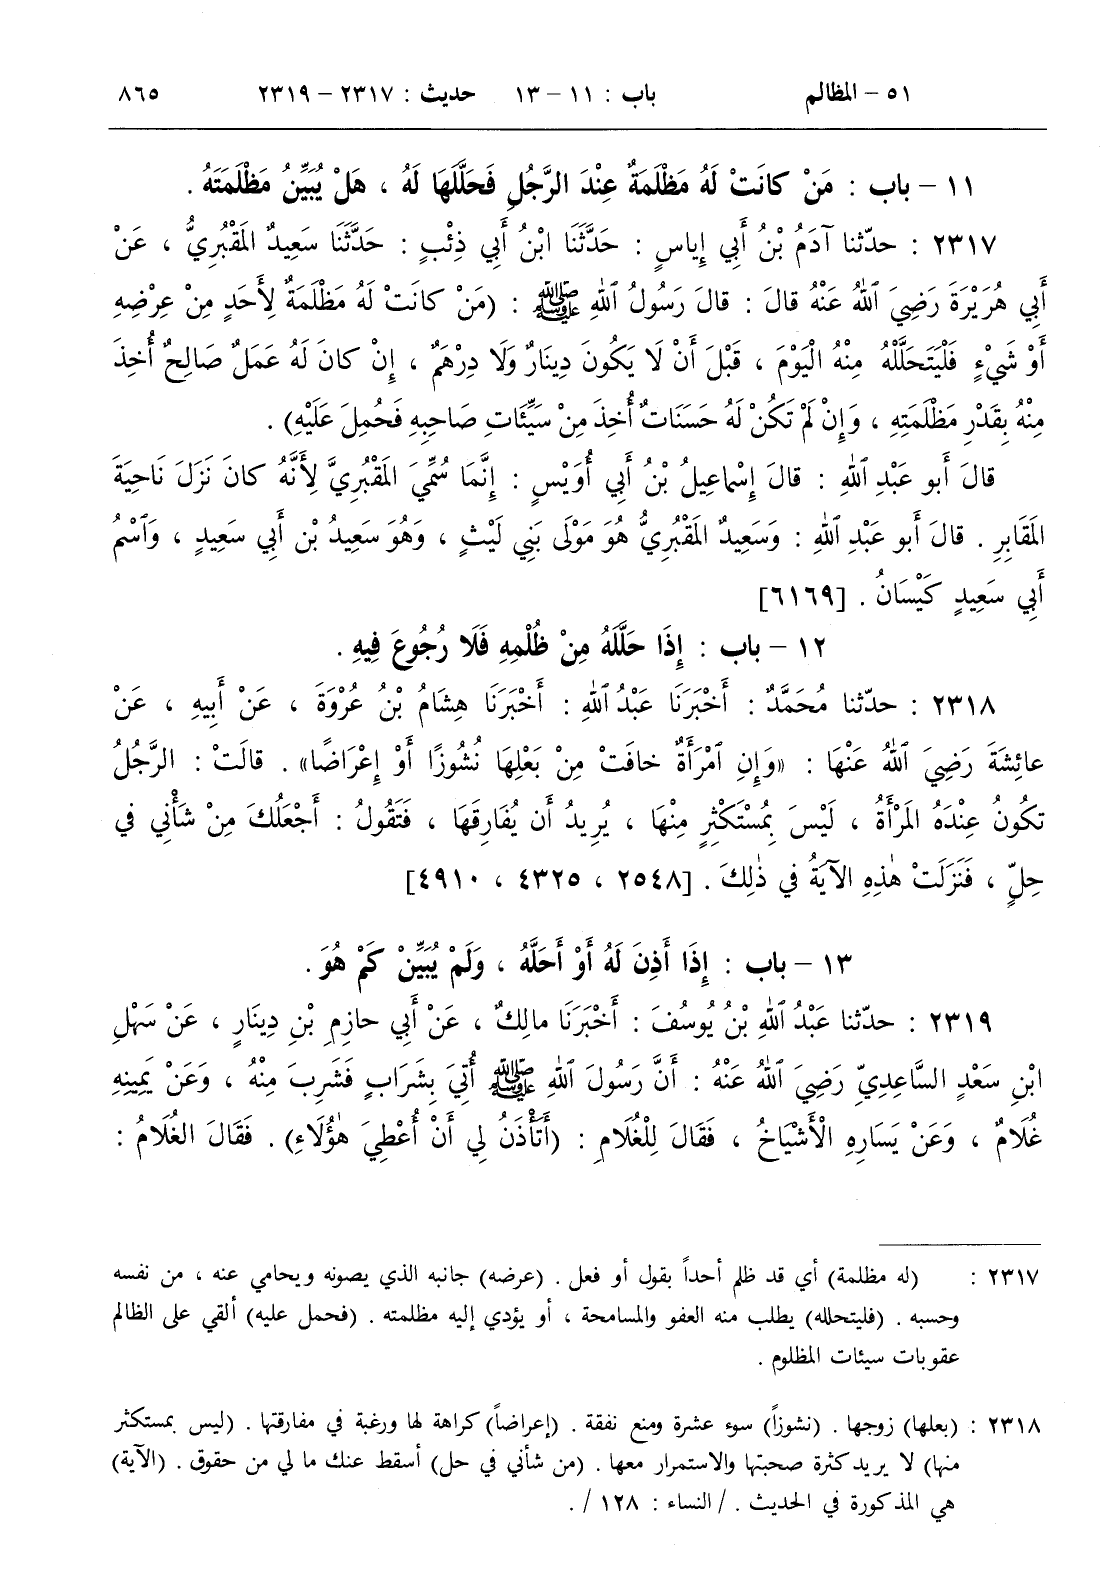 ٥١ – المظالم    باب : ١١ – ١٣    حديث : ٢٣١٧ – ٢٣١٩    ٨٦٥
١١ – باب : مَنْ كانَتْ لَهُ مَظْلَمَةٌ عِنْدَ الرَّجُلِ فَحَلَّلَهَا لَهُ ، هَلْ يُبَيِّنُ مَظْلَمَتَهُ .
٢٣١٧ : حدّثنا آدَمُ بْنُ أَبِي إِيَاسٍ : حَدَّثَنَا ابْنُ أَبِي ذِئْبٍ : حَدَّثَنَا سَعِيدٌ المَقْبُرِيُّ ، عَنْ
أَبِي هُرَيْرَةَ رَضِيَ ٱللهُ عَنْهُ قالَ : قالَ رَسُولُ ٱللهِ ﷺ : (مَنْ كانَتْ لَهُ مَظْلَمَةٌ لِأَحَدٍ مِنْ عِرْضِهِ
أَوْ شَيْءٍ فَلْيَتَحَلَّلْهُ مِنْهُ الْيَوْمَ ، قَبْلَ أَنْ لَا يَكُونَ دِينَارٌ وَلَا دِرْهَمٌ ، إِنْ كانَ لَهُ عَمَلٌ صَالِحٌ أُخِذَ
مِنْهُ بِقَدْرِ مَظْلَمَتِهِ ، وَإِنْ لَمْ تَكُنْ لَهُ حَسَنَاتٌ أُخِذَ مِنْ سَيِّئَاتِ صَاحِبِهِ فَحُمِلَ عَلَيْهِ) .
قالَ أَبو عَبْدِ ٱللهِ : قالَ إِسْماعِيلُ بْنُ أَبِي أُوَيْسٍ : إِنَّمَا سُمِّيَ المَقْبُرِيَّ لِأَنَّهُ كانَ نَزَلَ نَاحِيَةَ
المَقَابِرِ . قالَ أَبو عَبْدِ ٱللهِ : وَسَعِيدٌ المَقْبُرِيُّ هُوَ مَوْلَى بَنِي لَيْثٍ ، وَهُوَ سَعِيدُ بْن أَبِي سَعِيدٍ ، وَٱسْمُ
أَبِي سَعِيدٍ كَيْسَانُ . [٦١٦٩]
١٢ – باب : إِذَا حَلَّلَهُ مِنْ ظُلْمِهِ فَلَا رُجُوعَ فِيهِ .
٢٣١٨ : حدّثنا مُحَمَّدٌ : أَخْبَرَنَا عَبْدُ ٱللهِ : أَخْبَرَنَا هِشَامُ بْنُ عُرْوَةَ ، عَنْ أَبِيهِ ، عَنْ
عائِشَةَ رَضِيَ ٱللهُ عَنْهَا : «وَإِنِ ٱمْرَأَةٌ خافَتْ مِنْ بَعْلِهَا نُشُوزًا أَوْ إِعْرَاضًا» . قالَتْ : الرَّجُلُ
تَكُونُ عِنْدَهُ المَرْأَةُ ، لَيْسَ بِمُسْتَكْثِرٍ مِنْهَا ، يُرِيدُ أَن يُفَارِقَهَا ، فَتَقُولُ : أَجْعَلُكَ مِنْ شَأْنِي في
حِلٍّ ، فَنَزَلَتْ هٰذِهِ الآيَةُ في ذٰلِكَ . [٢٥٤٨ ، ٤٣٢٥ ، ٤٩١٠]
١٣ – باب : إِذَا أَذِنَ لَهُ أَوْ أَحَلَّهُ ، وَلَمْ يُبَيِّنْ كَمْ هُوَ .
٢٣١٩ : حدّثنا عَبْدُ ٱللهِ بْنُ يُوسُفَ : أَخْبَرَنَا مالِكٌ ، عَنْ أَبِي حازِمِ بْنِ دِينَارٍ ، عَنْ سَهْلِ
ابْنِ سَعْدٍ السَّاعِدِيِّ رَضِيَ ٱللهُ عَنْهُ : أَنَّ رَسُولَ ٱللهِ ﷺ أُتِيَ بِشَرَابٍ فَشَرِبَ مِنْهُ ، وَعَنْ يَمِينِهِ
غُلَامٌ ، وَعَنْ يَسَارِهِ الْأَشْيَاخُ ، فَقَالَ لِلْغُلَامِ : (أَتَأْذَنُ لِي أَنْ أُعْطِيَ هٰؤُلَاءِ) . فَقَالَ الغُلَامُ :
٢٣١٧ : (له مظلمة) أي قد ظلم أحداً بقول أو فعل . (عرضه) جانبه الذي يصونه ويحامي عنه ، من نفسه
وحسبه . (فليتحلله) يطلب منه العفو والمسامحة ، أو يؤدي إليه مظلمته . (فحمل عليه) ألقي على الظالم
عقوبات سيئات المظلوم .
٢٣١٨ : (بعلها) زوجها . (نشوزاً) سوء عشرة ومنع نفقة . (إعراضاً) كراهة لها ورغبة في مفارقتها . (ليس بمستكثر
منها) لا يريد كثرة صحبتها والاستمرار معها . (من شأني في حل) أسقط عنك ما لي من حقوق . (الآية)
هي المذكورة في الحديث . / النساء : ١٢٨ / .